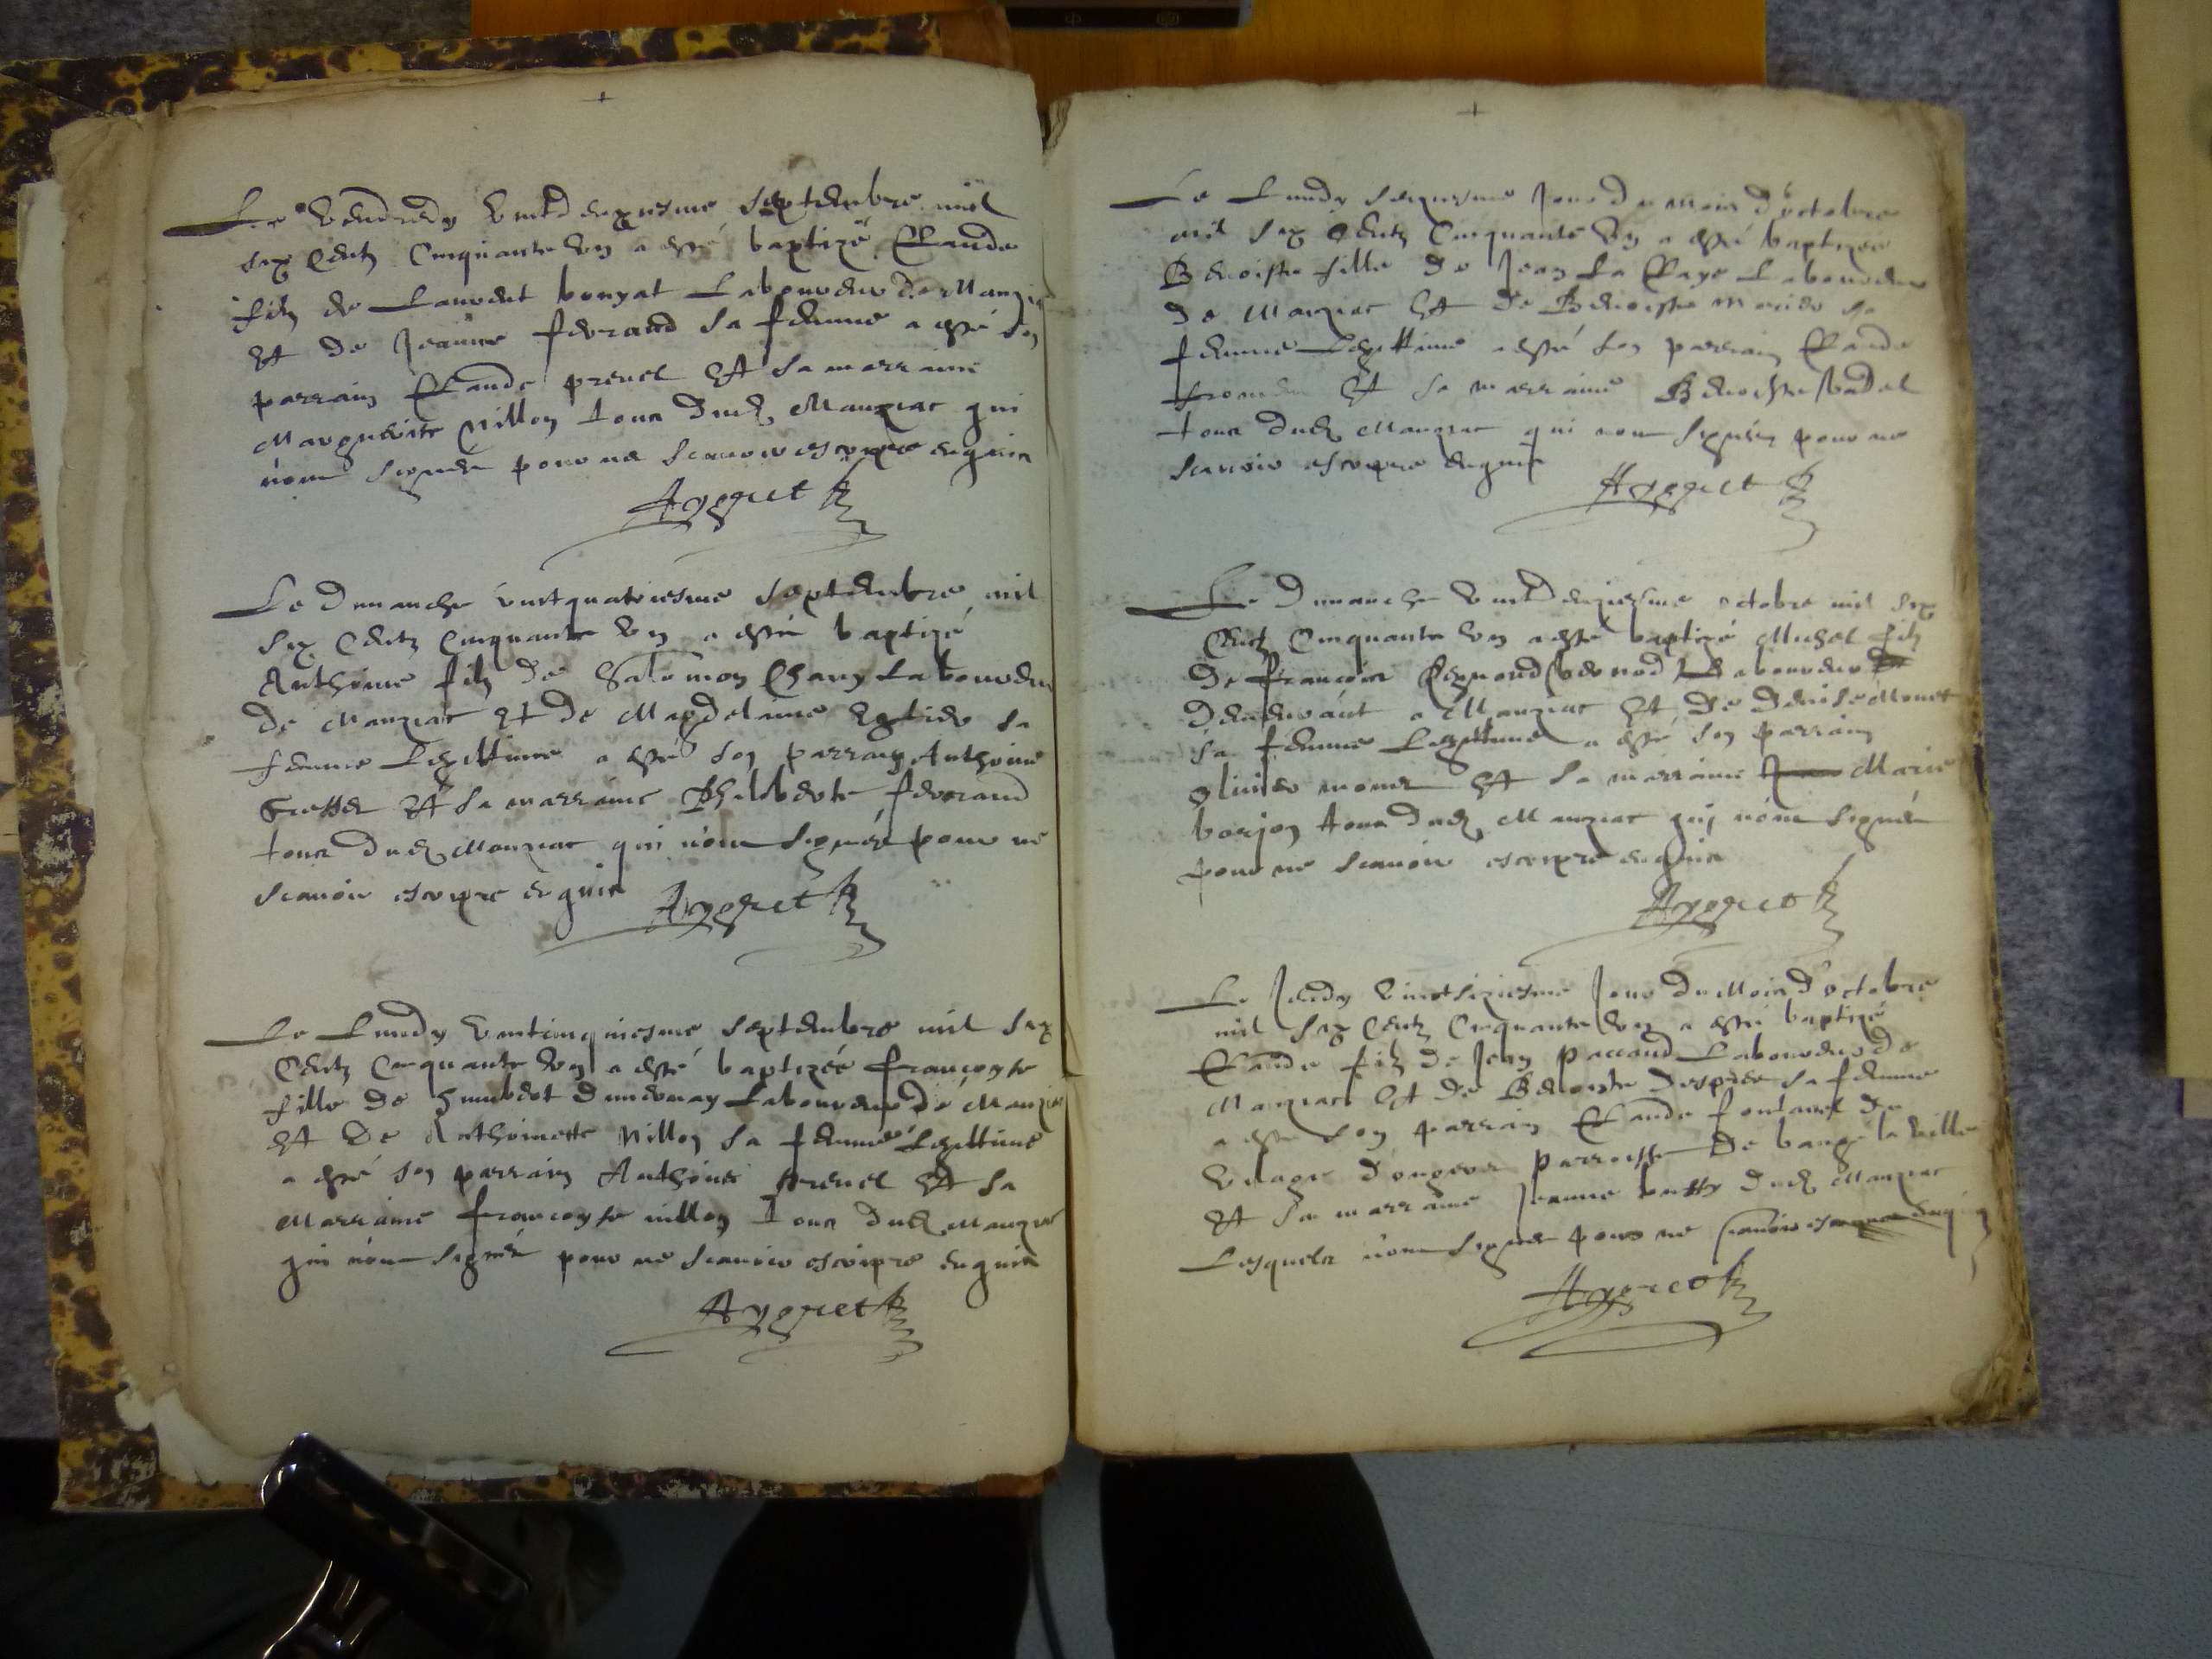 +
Le Vendredy vintdeuxiesme septembre mil
six Centz Cinquante Un a esté baptizé Claude
filz de Laurent bonyat Laboureur de Manzia
et de Jeanne ferrand sa femme a esté son
parrain Claude prevel et sa marraine
Marguerite Nillon tous dud Manziat qui
nont signés pour ne scavoir escripre enquis
Aygret
Le Dimanche vintquatriesme septembre mil
six Centz Cinquante Un a esté baptizé
Anthoine filz de Salomon Chany Laboureur
de Manziat et de Magdelaine sa
femme Legittime a esté son parrain Anthoine
et sa marraine Philiberte ferrand
tous dud Manziat qui nont signés pour ne
scavoir escripre enquis
Aygret
Le Lundy vintcinquiesme septembre mil six
Centz Cinquante Un a esté baptizée françoyse
fille de humbert Laboureur de Manziat
et de Anthoinette Nillon sa femme Legittime
a esté son parrain Anthoine prevel et sa
Marraine françoyse nillon tous dud Manziat
qui nont signés pour ne scavoir escripre enquis
Aygret
+
Le Lundy seziesme Jour du mois d'octobre
mil six Centz Cinquante Un a esté baptizée
Benoiste fille de Jean La Laboureur
de Manziat et de Benoiste sa
femme Legittime a esté son parrain Claude
et sa marraine Benoiste badel
tous dud Manziat qui nont signés pour ne
scavoir escripre enquis
Aygret
Le Dimanche vintdeuziesme octobre mil six
Centz Cinquante Un a esté baptizé Michel filz
De françois Laboureur
Demeurant a Manziat et de Denise Monet
sa femme Legittime a esté son parrain
olivier monet et sa marraine Marie
borjon tous dud Manziat qui nont signés
pour ne scavoir escripre enquis
Aygret
Le Jeudy vintsiziesme Jour du Mois d'octobre
mil six Centz Cinquante Un a esté baptizé
Claude filz de Jean paccaud Laboureur de
Manziat et de Benoiste Despres sa femme
a esté son parrain Claude fontanel du
Vilage parroisse de baugé la ville
et sa marraine Jeanne dud Manziat
Lesquels nont signés pour ne scavoir
Aygret